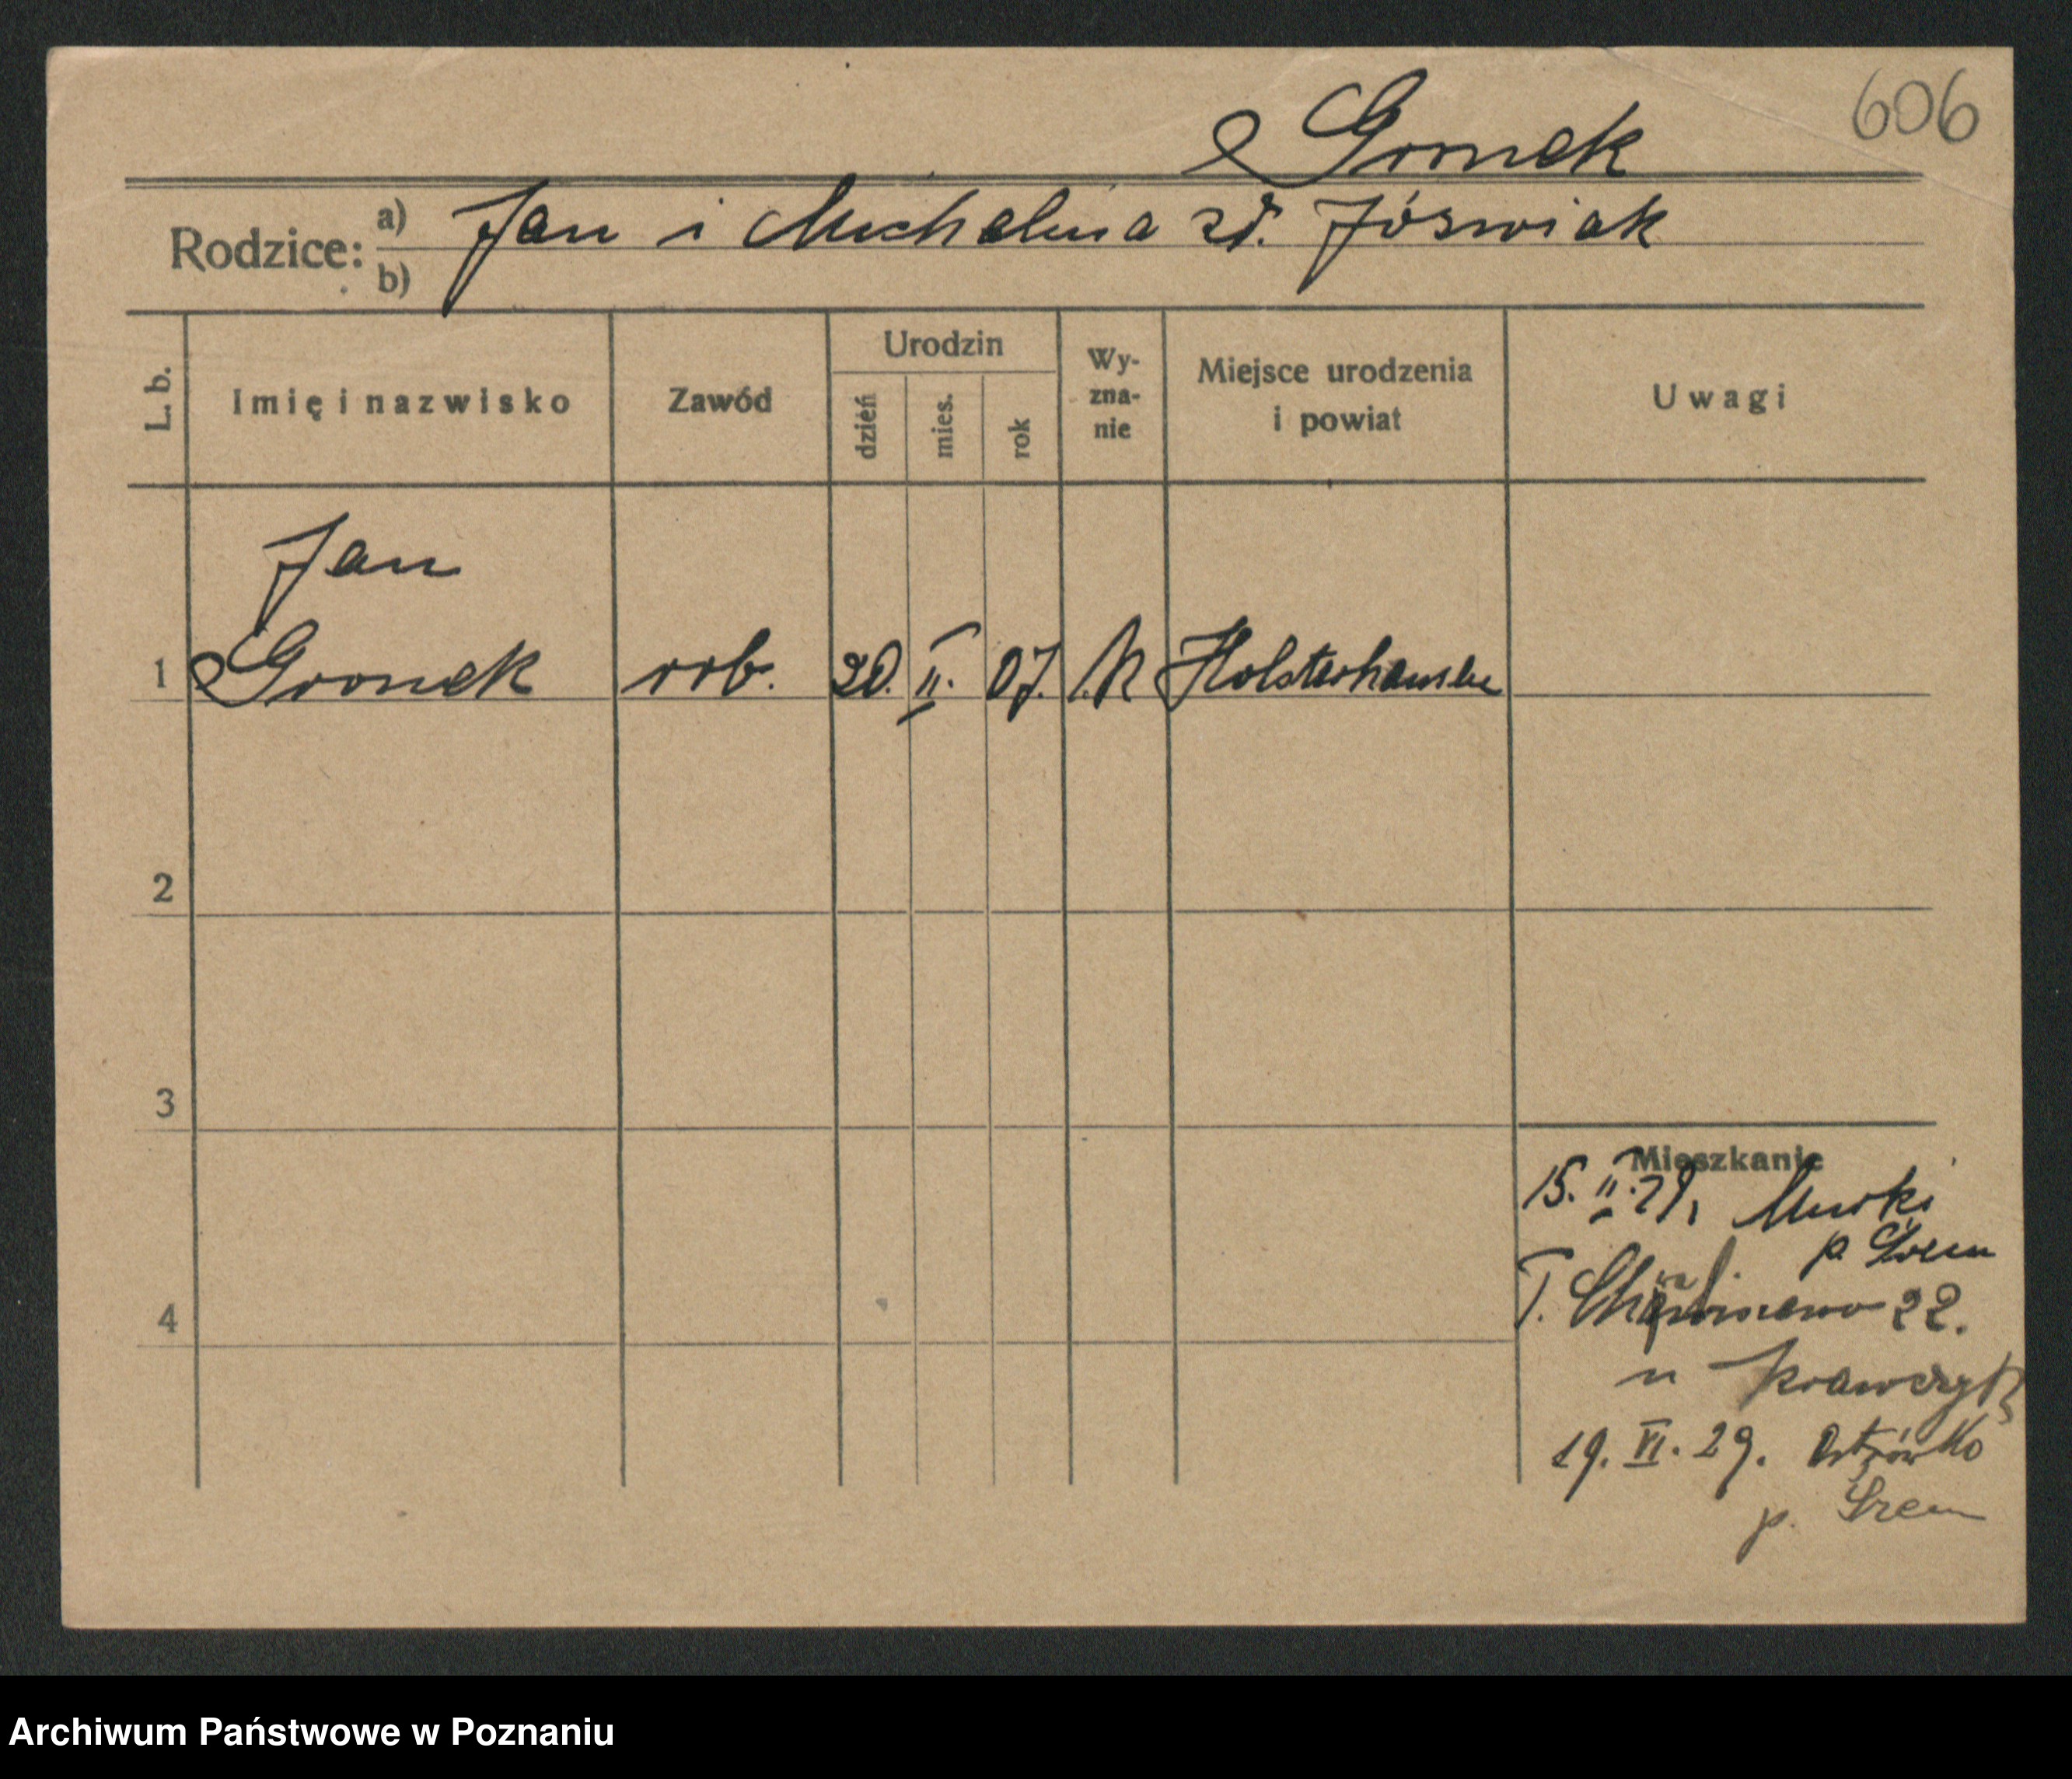 606
Gronek
Rodzice:
a) Jan i Michalina zd. Jóswiak
b)
L. b.
Imię i nazwisko
Zawód
Urodzin
dzień
mies.
rok
Wy-
zna-
nie
Miejsce urodzenia
i powiat
Uwagi
Jan
1 Gronek rob. 20. II. 07.
2
3
4
Mieszkanie
15. II. 29. Murki
p. Śrem
22.
u Krawczyk
19. VI. 29. Ostrówko
p. Srem
Archiwum Państwowe w Poznaniu